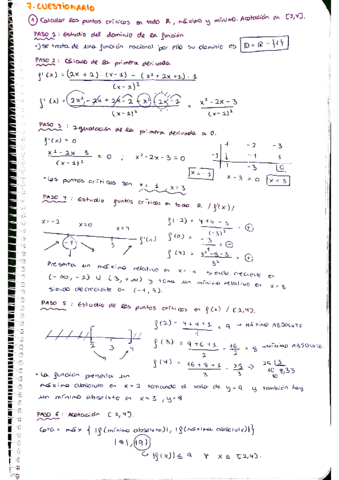 7. CUESTIONARIO
① Calcular los puntos críticos en todo R, máximo y mínimo. Acotación en [2,4].
PASO 1: Estudio del dominio de la función
→ se trata de una función racional por ello su dominio es D = R - {1}
PASO 2: Cálculo de la primera derivada
f'(x) = (2x + 2) · (x - 1) - (x² + 2x + 1) · 1 / (x - 1)²
f'(x) = 2x² - 2x + 2x - 2 - x² - 2x - 1 / (x - 1)² = x² - 2x - 3 / (x - 1)²
PASO 3: Igualación de la primera derivada a 0.
f'(x) = 0
x² - 2x - 3 / (x - 1)² = 0 ; x² - 2x - 3 = 0
1 -2 -3
-1 -1 3
1 -3 0
x = -1
x - 3 = 0 x = 3
PASO 4: Estudio puntos críticos en todo R / f'(x)/
x = -2 x = 0 x = 4
-1 3 f'(x)
Presenta un máximo relativo en x = -1 siendo creciente en
(-∞, -1) U (3, +∞) y tiene un mínimo relativo en x = 3
siendo decreciente en (-1, 3).
PASO 5: Estudio de los puntos críticos en f(x) / [2,4].
2 3 4
f(2) = 4 + 4 + 1 / 1 = 9 → MÁXIMO ABSOLUTO
f(3) = 9 + 6 + 1 / 2 = 16 / 2 = 8 MÍNIMO ABSOLUTO
f(4) = 16 + 8 + 1 / 3 = 25 / 3 ⇒
25 3
10 8,33
• La función presenta un
máximo absoluto en x = 2 tomando el valor de y = 9 y también hay
un mínimo absoluto en x = 3, y = 8
PASO 6: Acotación [2,4].
Cota = máx { |f(mínimo absoluto)|, |f(máximo absoluto)| }
|8|, |9|
|f(x)| ≤ 9 ∀ x ∈ [2,4].